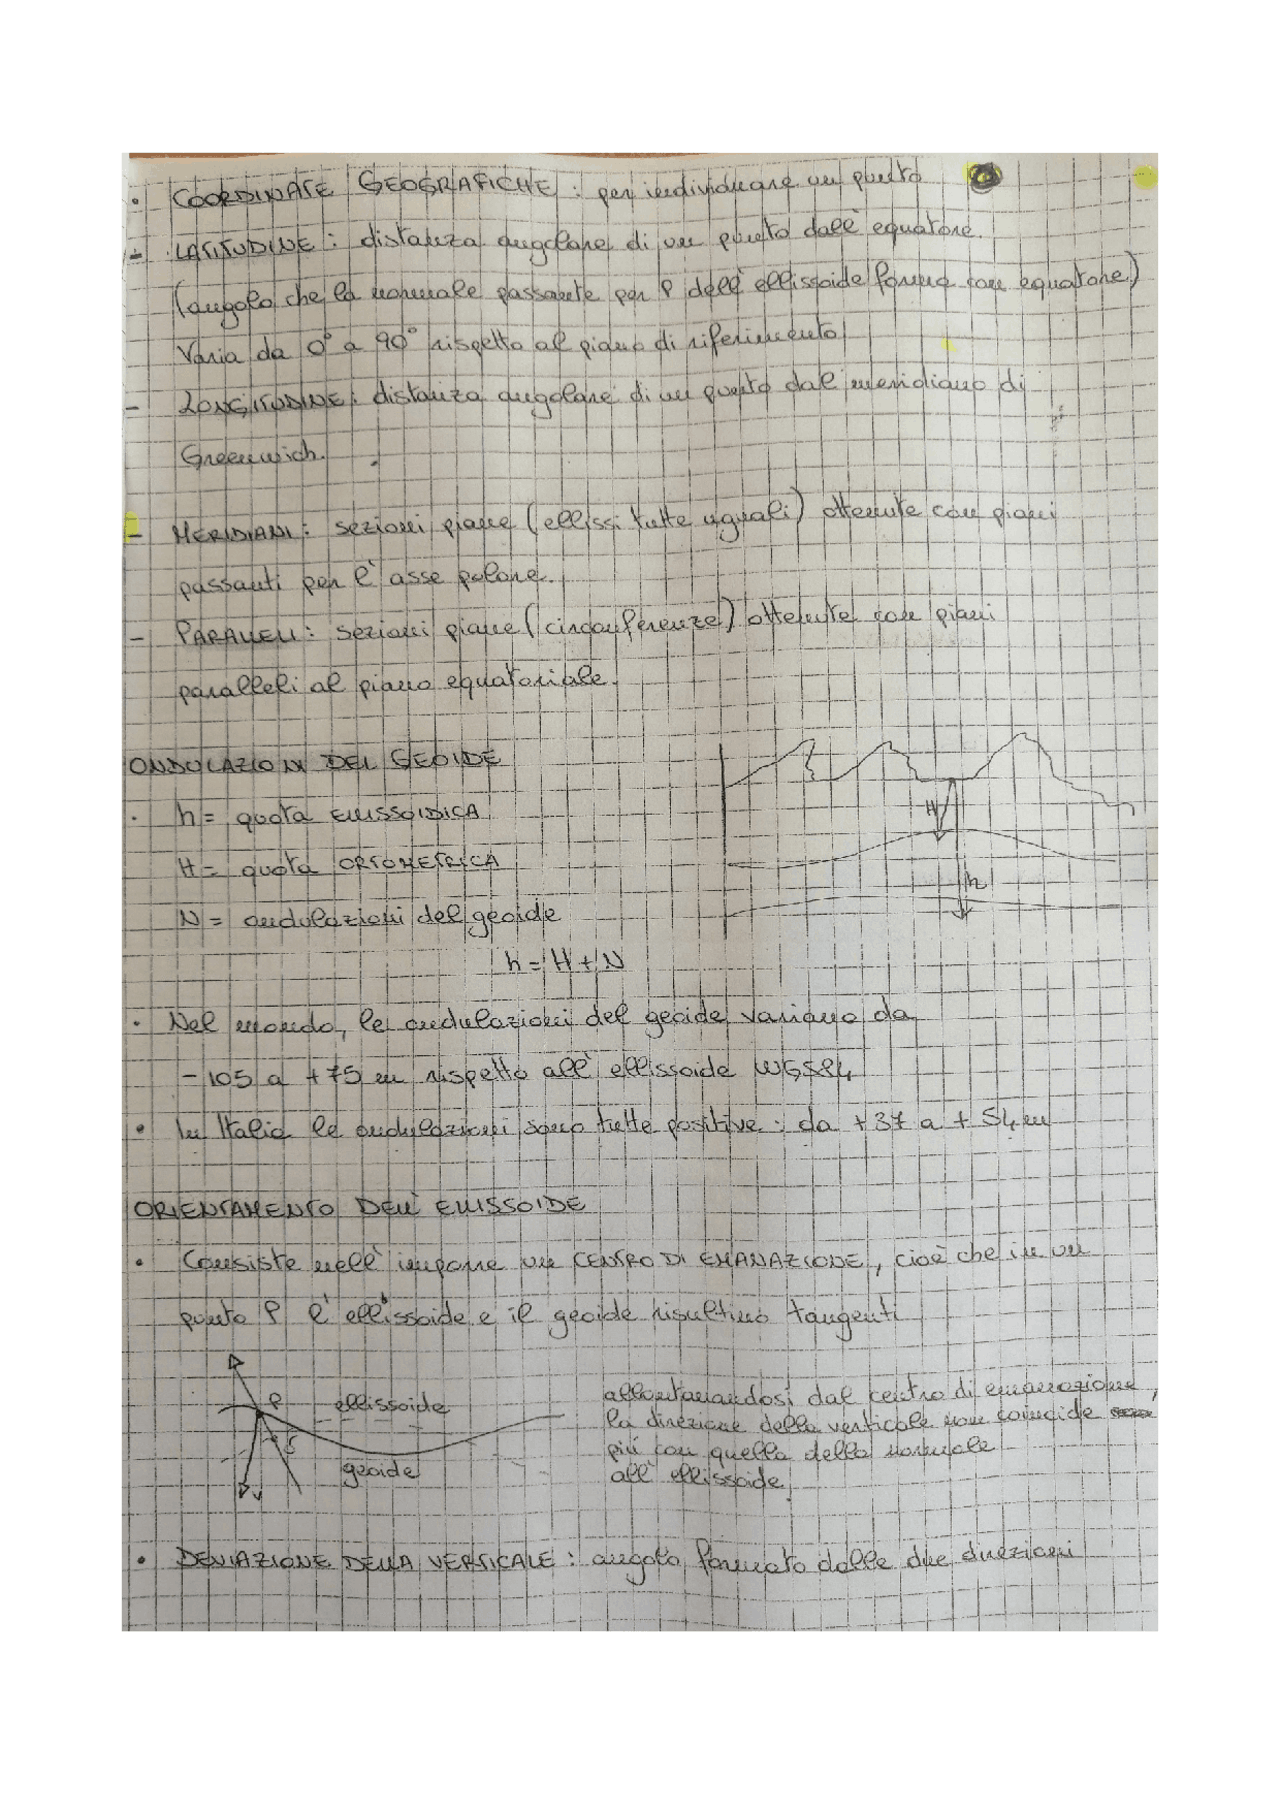 • COORDINATE GEOGRAFICHE : per individuare un punto
- LATITUDINE : distanza angolare di un punto dall'equatore.
(angolo che la normale passante per P dell'ellissoide forma con equatore)
Varia da 0° a 90° rispetto al piano di riferimento
- LONGITUDINE : distanza angolare di un punto dal meridiano di
Greenwich.
- MERIDIANI : sezioni piane (ellissi tutte uguali) ottenute con piani
passanti per l'asse polare.
- PARALLELI : sezioni piane (circonferenze) ottenute con piani
paralleli al piano equatoriale.
ONDULAZIONI DEL GEOIDE
• h = quota ELLISSOIDICA
H = quota ORTOMETRICA
N = ondulazioni del geoide
h = H + N
H
h
• Nel mondo, le ondulazioni del geoide variano da
- 105 a +75 m rispetto all'ellissoide WGS84
• In Italia le ondulazioni sono tutte positive : da +37 a + 54 m
ORIENTAMENTO DELL'ELLISSOIDE
• Consiste nell'imporre un CENTRO DI EMANAZIONE, cioè che in un
punto P l'ellissoide e il geoide risultino tangenti
P ellissoide
geoide
v
allontanandosi dal centro di emanazione,
la direzione della verticale non coincide
più con quella della normale
all'ellissoide.
• DEVIAZIONE DELLA VERTICALE : angolo formato dalle due direzioni